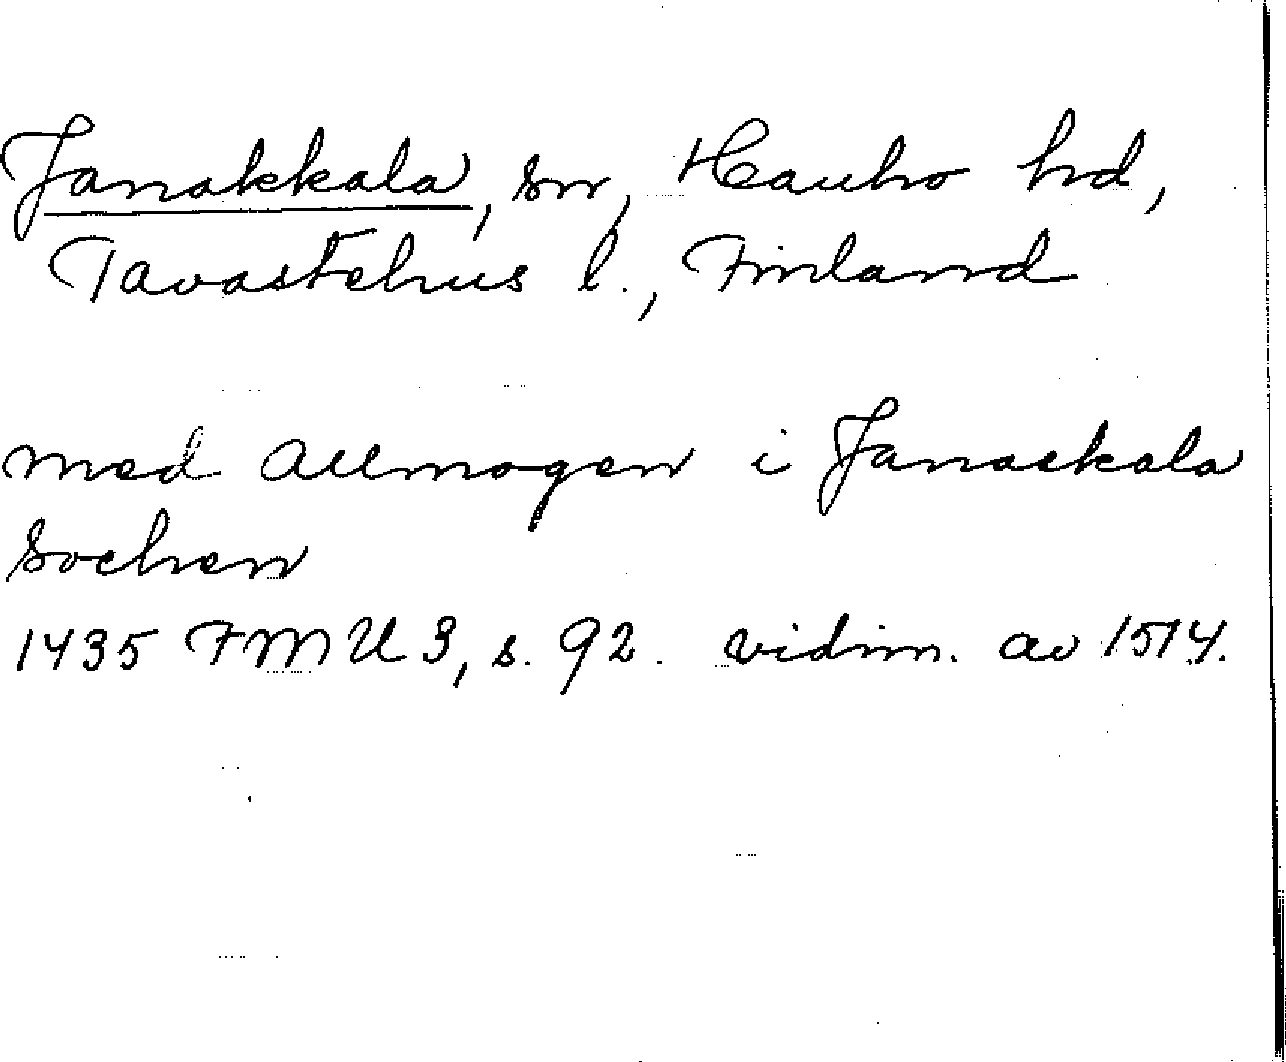 Janakkala, sn, Hauho hd,
Tavastehus l., Finland
med Allmogen i Janackala
Sochen
1435 FMU 3, s. 92. vidim. av 1514.